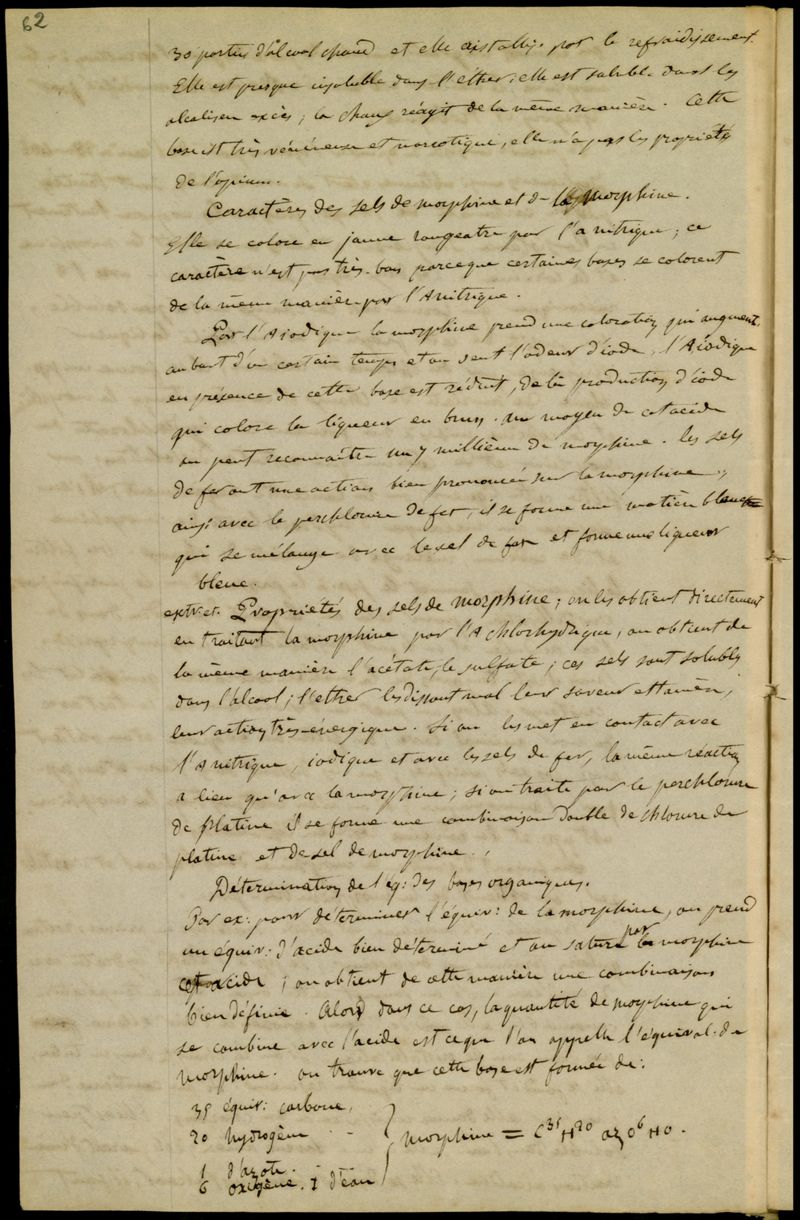 62
30 parties d'alcool chaud et elle cristallise par le refroidissement.
Elle est presque insoluble dans l'éther, elle est soluble dans les
alcalis en excès ; la chaux réagit de la même manière. Cette
base est très vénéneuse et narcotique, elle n'a pas les propriétés
de l'opium.
Caractères des sels de morphine et de la morphine.
Elle se colore en jaune rougeatre par l'a nitrique ; ce
caractère n'est pas très bon parceque certaines bases se colorent
de la même manière par l'A nitrique.
Par l'A iodique la morphine prend une coloration qui augmente
au bout d'un certain temps et on sent l'odeur d'iode, l'A iodique
en présence de cette base est réduit, de là production d'iode
qui colore la liqueur en brun. Au moyen de cet acide
on peut reconnaitre un 7 millième de morphine. Les sels
de fer ont une action bien prononcée sur la morphine ;
ainsi avec le perchlorure de fer, il se forme une matière blanche
qui se mélange avec le sel de fer et forme une liqueur
bleue.
extr. et. Propriétés des sels de morphine ; on les obtient directement
en traitant la morphine par l'A chlorhydrique, on obtient de
la même manière l'acétate, le sulfate ; ces sels sont solubles
dans l'alcool ; l'ether les dissout mal leur saveur est amère,
leur action très énergique. Si on les met en contact avec
l'A nitrique, iodique et avec les sels de fer, la même réaction
a lieu qu'avec la morphine ; si on traite par le perchlorure
de platine il se forme une combinaison double de chlorure de
platine et de sel de morphine.
Détermination de l'éq: des bases organiques.
Par ex: pour déterminer l'équiv: de la morphine, on prend
un équiv: d'acide bien déterminé et on sature par la morphine
cet acide ; on obtient de cette manière une combinaison
bien définie. Alors dans ce cas, la quantité de morphine qui
se combine avec l'acide est ce que l'on appelle l'équival. de
morphine. on trouve que cette base est formée de :
35 équiv: carbone,
20 hydrogène } morphine = C³⁵ H²⁰ az O⁶ HO.
1 d'azote.
6 oxigène. 1 d'eau